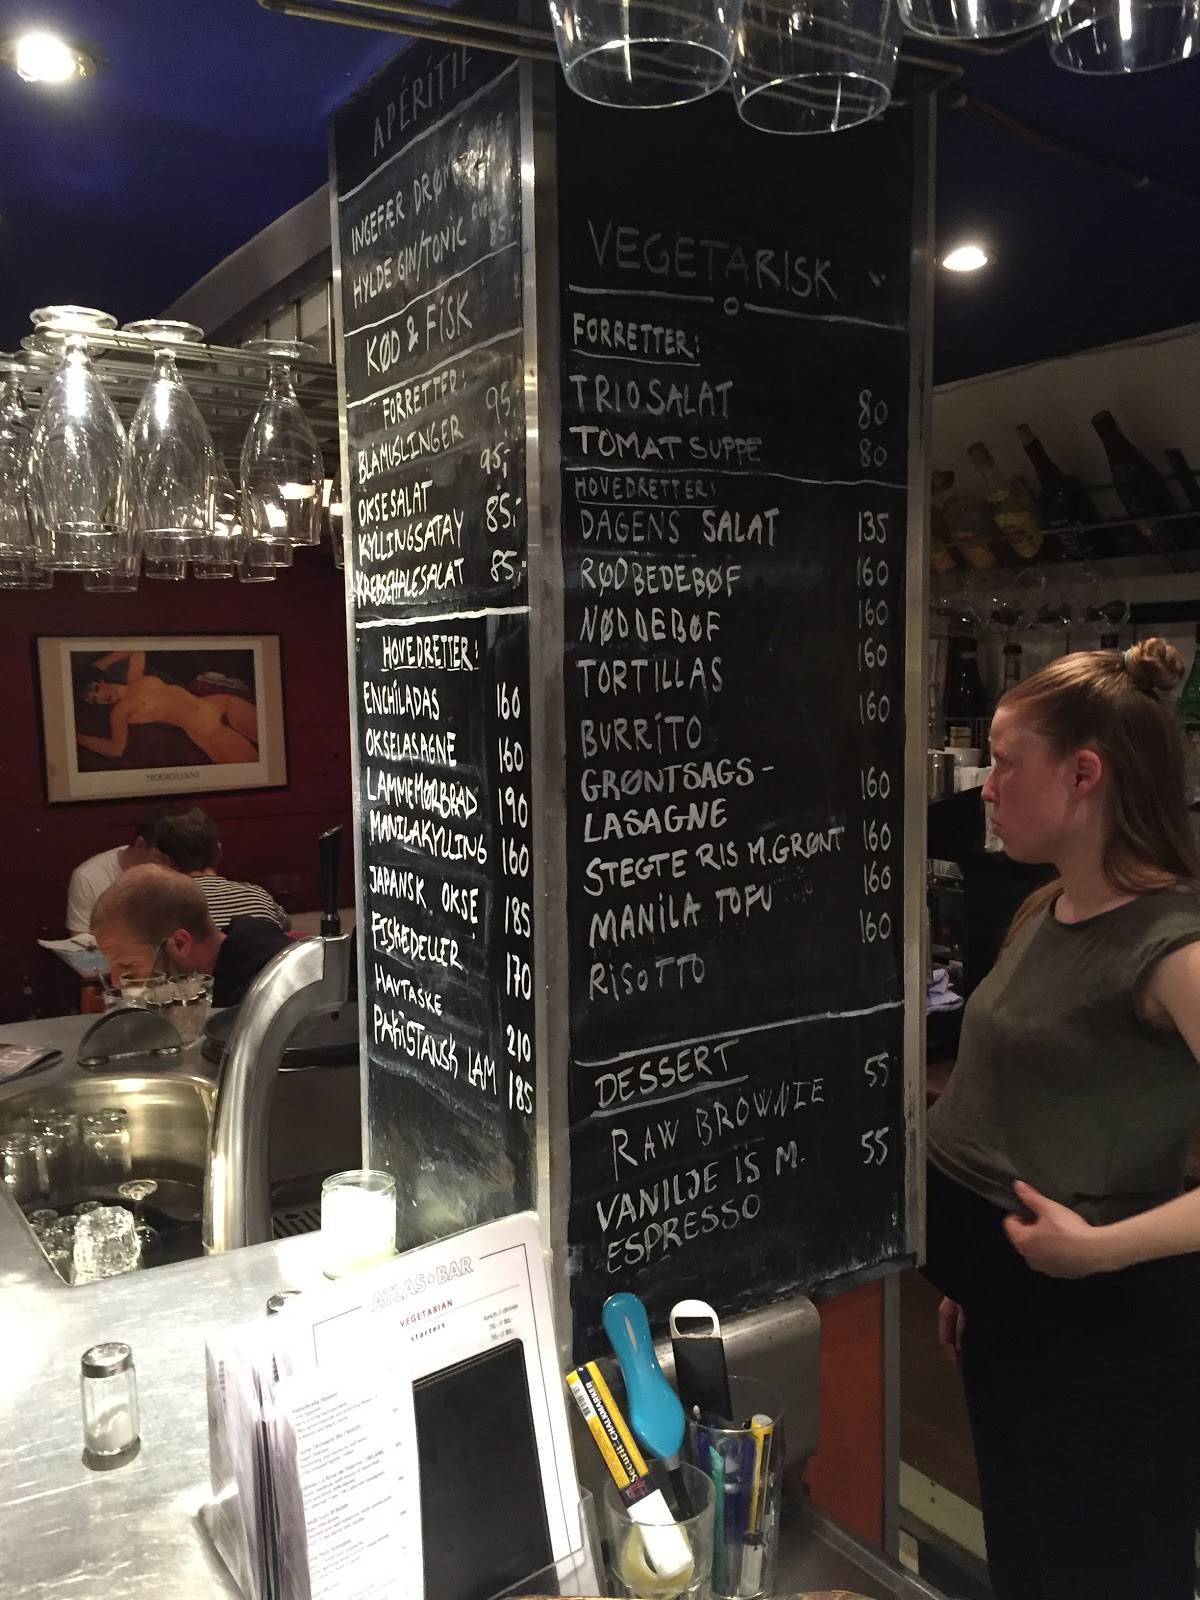 APÉRITIF
INGEFÆR
HYLDE GIN/TONIC 85,-
KØD & FISK
FORRETTER:
BLÅMUSLINGER 95,-
OKSESALAT 95,-
KYLLINGSATAY 85,-
KREBSEHALESALAT 85,-
HOVEDRETTER:
ENCHILADAS 160
OKSELASAGNE 160
LAMMEMØRBRAD 190
MANILAKYLLING 160
JAPANSK OKSE 185
FISKEDELLER 170
HAVTASKE 210
PAKISTANSK LAM 185
VEGETARISK
FORRETTER:
TRIOSALAT 80
TOMATSUPPE 80
HOVEDRETTER:
DAGENS SALAT 135
RØDBEDEBØF 160
NØDDEBØF 160
TORTILLAS 160
BURRITO 160
GRØNTSAGS-
LASAGNE 160
STEGTE RIS M. GRØNT 160
MANILA TOFU 160
RISOTTO 160
DESSERT
RAW BROWNIE 55
VANILJE IS M. 55
ESPRESSO
MODIGLIANI
ATLAS • BAR
VEGETARIAN
starters
lunch // dinner
70,- // 80,-
70,- // 80,-
Securit-CHALKMARKER